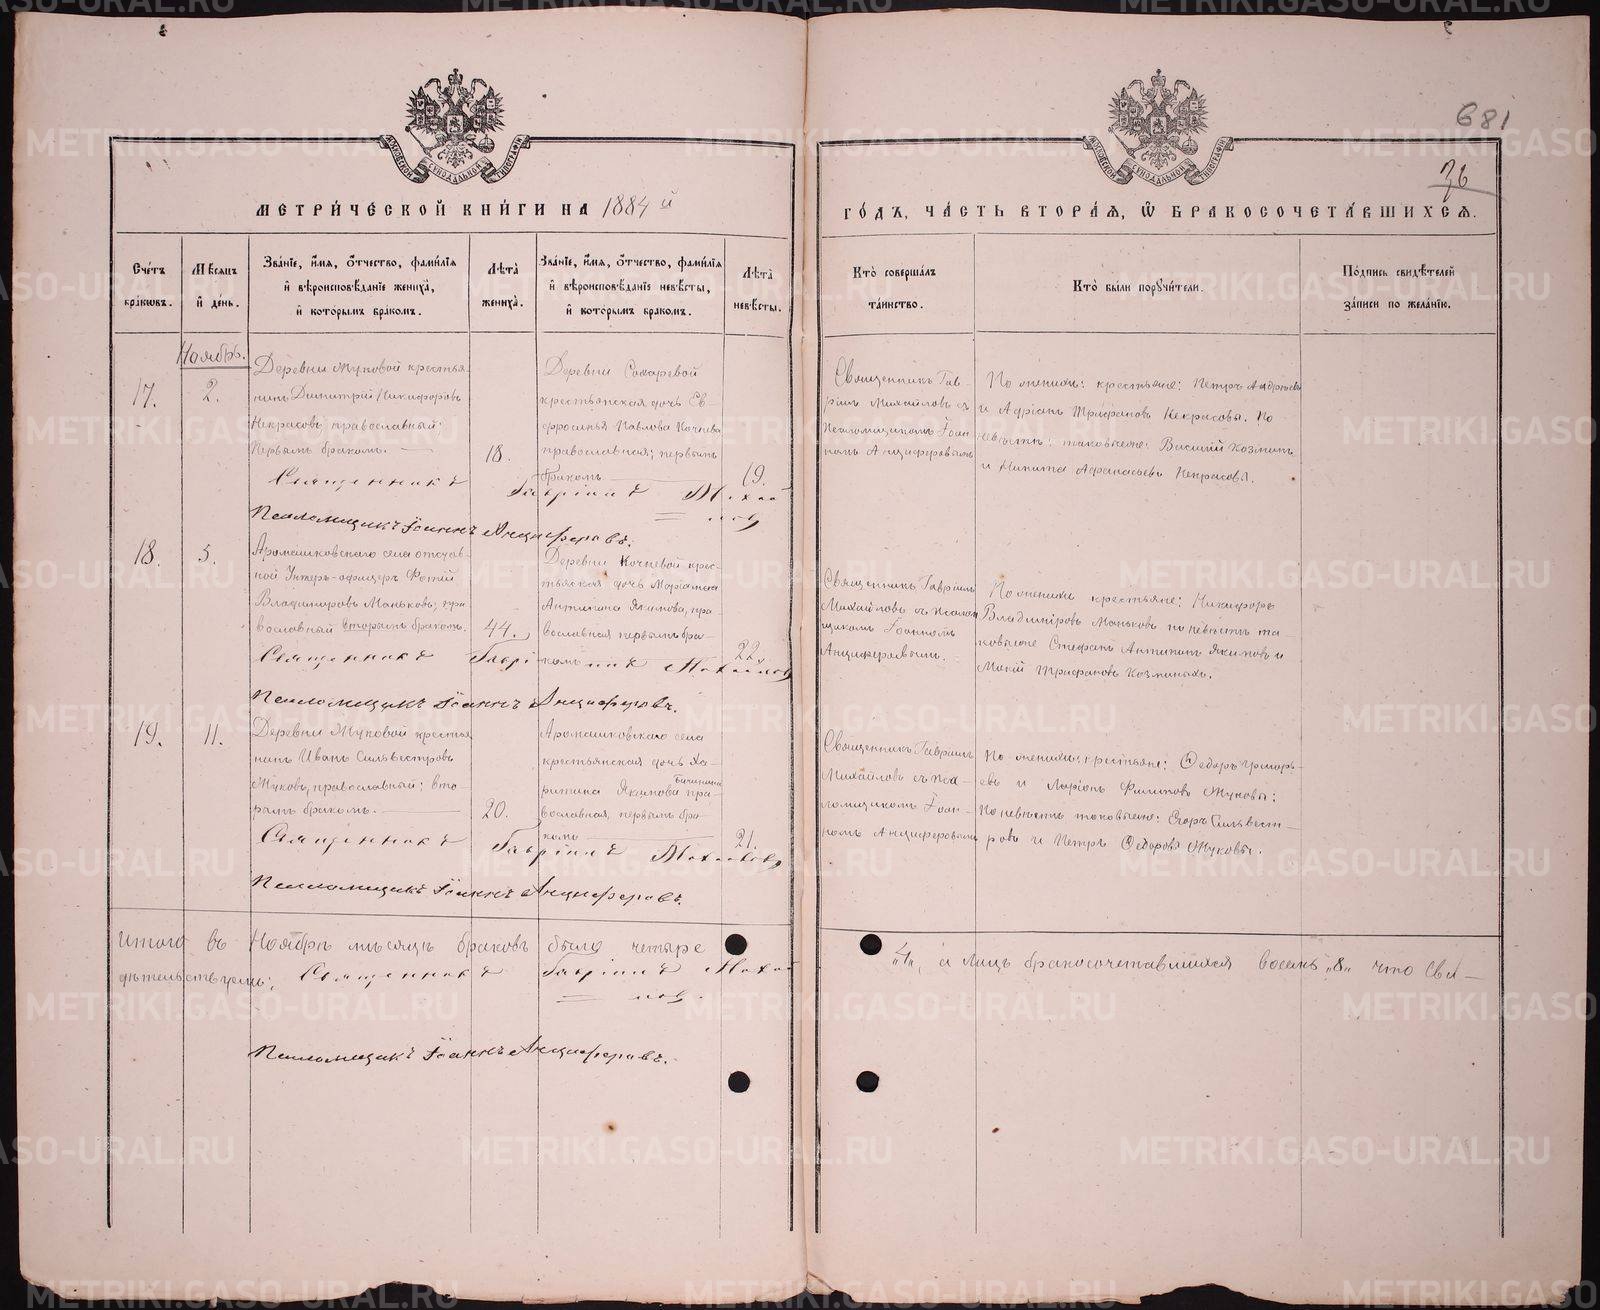 681
36
МЕТРИ́ЧЕСКОЙ КНИ́ГИ НА 1884 й
ГО́ДЪ, ЧА́СТЬ ВТОРА́Я, Ѽ БРАКОСОЧЕТА́ВШИХСЯ.
Сче́тъ бра́ковъ.
Мѣ́сяцъ и҆ де́нь.
Зва́нїе, и҆́мя, ѻ҆́тчество, фами́лїя
и҆ вѣроисповѣ́данїе жениха̀,
и҆ кото́рымъ бра́комъ.
Лѣ́та жениха̀.
Зва́нїе, и҆́мя, ѻ҆́тчество, фами́лїя
и҆ вѣроисповѣ́данїе невѣ́сты,
и҆ кото́рымъ бра́комъ.
Лѣ́та невѣ́сты.
Кто̀ соверша́лъ та́инство.
Кто̀ бы́ли порꙋчи́тели.
По́дпись свидѣ́телей за́писи по жела́нїю.
Ноябрь.
17.
2.
Деревни Жуковой крестья-
нинъ Димитрій Никифоровъ
Некрасовъ, православный;
Первымъ бракомъ.
18.
Деревни Сохаревой
крестьянская дочь Ев-
фросинья Павлова Кочнева
православная; первымъ
бракомъ
19.
Священникъ Гав-
ріилъ Михайловъ съ
Псаломщикомъ Іоан-
номъ Анциферовымъ
По женихѣ: крестьяне: Петръ Андреевъ
и Адріанъ Трифановъ Некрасовы. По
невѣстѣ: таковыеже: Василій Козминъ
и Никита Афанасьевъ Некрасовы.
Священникъ Гавріилъ Михай
ловъ
Псаломщикъ Іоаннъ Анциферовъ.
18.
5.
Аромашковскаго села отстав-
ной Унтеръ-офицеръ Фотій
Владиміровъ Маньковъ; пра-
вославный вторымъ бракомъ.
44.
Деревни Кочневой крес-
тьяская дочь Маріамна
Антипина Якимова, пра-
вославная первымъ бра-
комъ
22.
Священникъ Гавріилъ
Михайловъ съ псалом
щикомъ Іоанномъ
Анциферовымъ.
По женихѣ крестьяне: Никифоръ
Владиміровъ Маньковъ по невѣстѣ та
ковыеже Стефанъ Антипинъ Якимовъ и
Мокій Трифановъ Козминыхъ.
Священникъ Гавріилъ Михайловъ
Псаломщикъ Іоаннъ Анциферовъ.
19.
11.
Деревни Жуковой крестья
нинъ Иванъ Сильвестровъ
Жуковъ, православный; вто-
рымъ бракомъ.
20.
Аромашковскаго села
крестьянская дочь Ха-
ритина Якимова пра-
вославная, первымъ бра-
комъ
21.
Священникъ Гавріилъ
Михайловъ съ пса-
ломщикомъ Іоан-
номъ Анциферовымъ
По женихѣ: крестьяне: Ѳедоръ Григорь-
евъ и Ларіонъ Филиповъ Жуковы;
По невѣстѣ таковыеже: Егоръ Сильвест-
ровъ и Петръ Ѳедоровъ Жуковы.
Священникъ Гавріилъ Михайловъ
Псаломщикъ Іоаннъ Анциферовъ.
Итого въ Ноябрѣ мѣсяцѣ браковъ было четыре „4“, а лицъ бракосочетавшихся восемь „8“ что сви-
дѣтельствуемъ; Священникъ Гавріилъ Михай
ловъ
Псаломщикъ Іоаннъ Анциферовъ.
METRIKI.GASO-URAL.RU